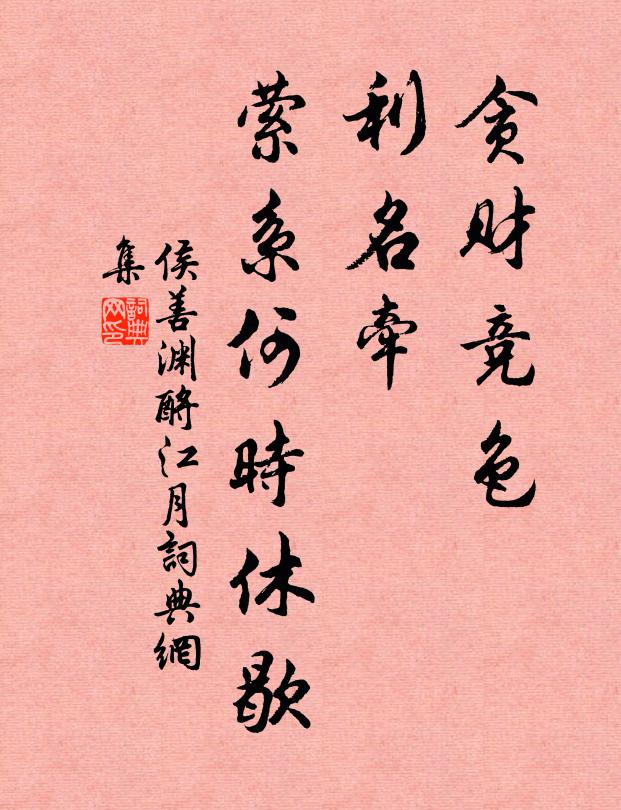 贪财竞色
利名牵
萦系何時休歇
侯善渊酹江月詞典網
集
詞典
网印